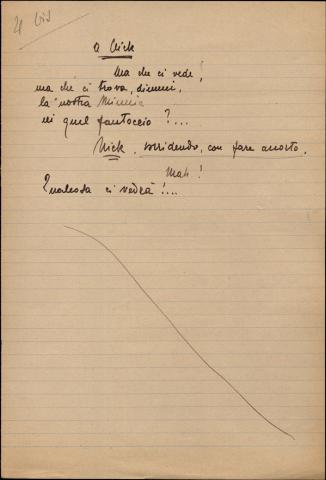 21 bis
a Nick
Ma che ci vede,
ma che ci trova, dimmi,
la nostra Minnie
in quel fantoccio ?...
Nick, sorridendo, con fare
Mah !
Qualcosa ci vedrà !...